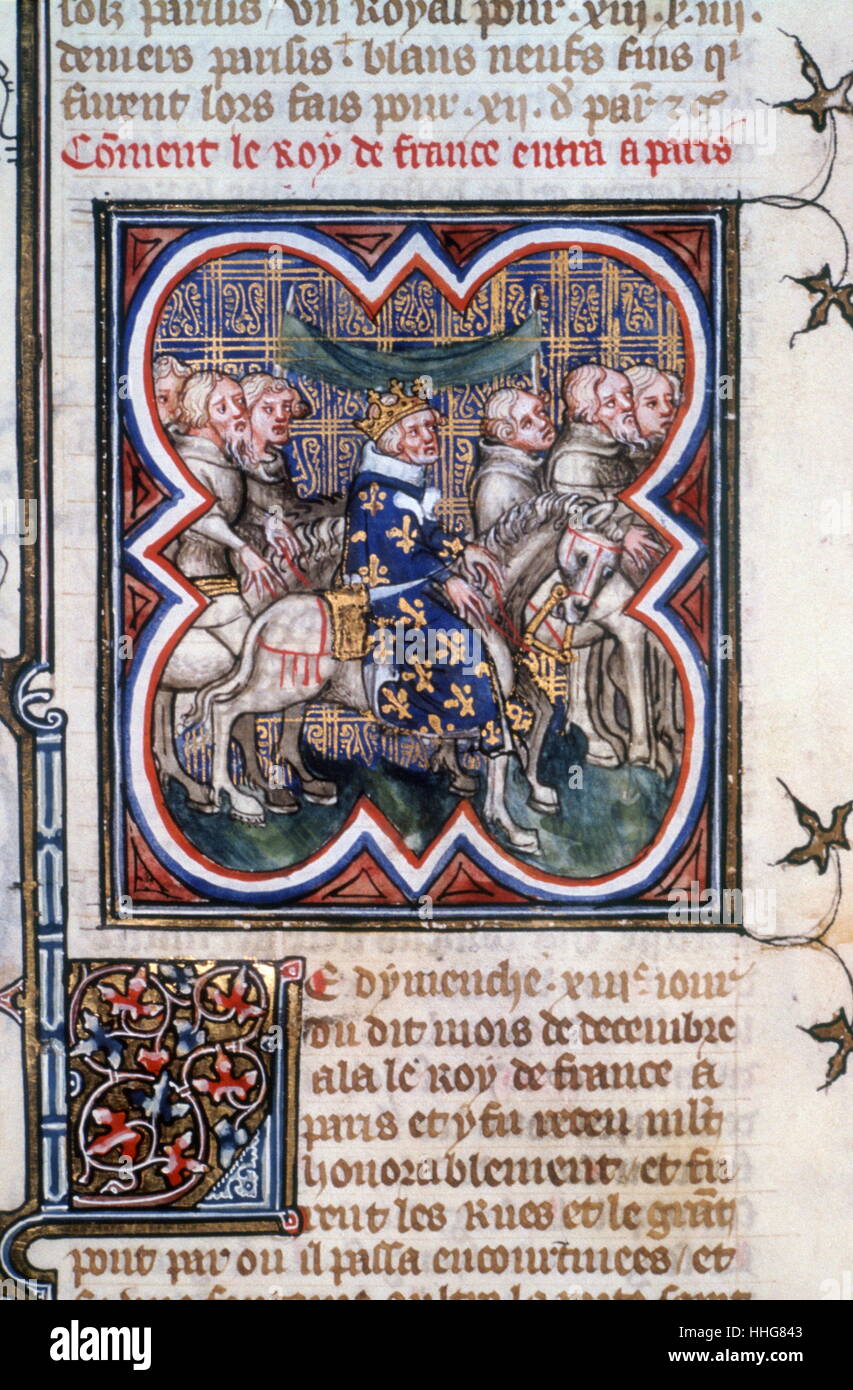 solz parisis / Vn Royal pour . xiii . s . iiii .
deniers parisis . blans neufs fins qͥ
furent lors fais pour . xij . d̉ par̃
Cõment le Roy de france entra a paris
LE dymenche . xiiiᵉ iour
du dit mois de decembre
ala le Roy de france a
paris et y fu receu ml̃t
honorablement / et fu
rent les Rues et le grãt
pont par ou il passa encourtinees / et
alamy
Image ID: HHG843
www.alamy.com